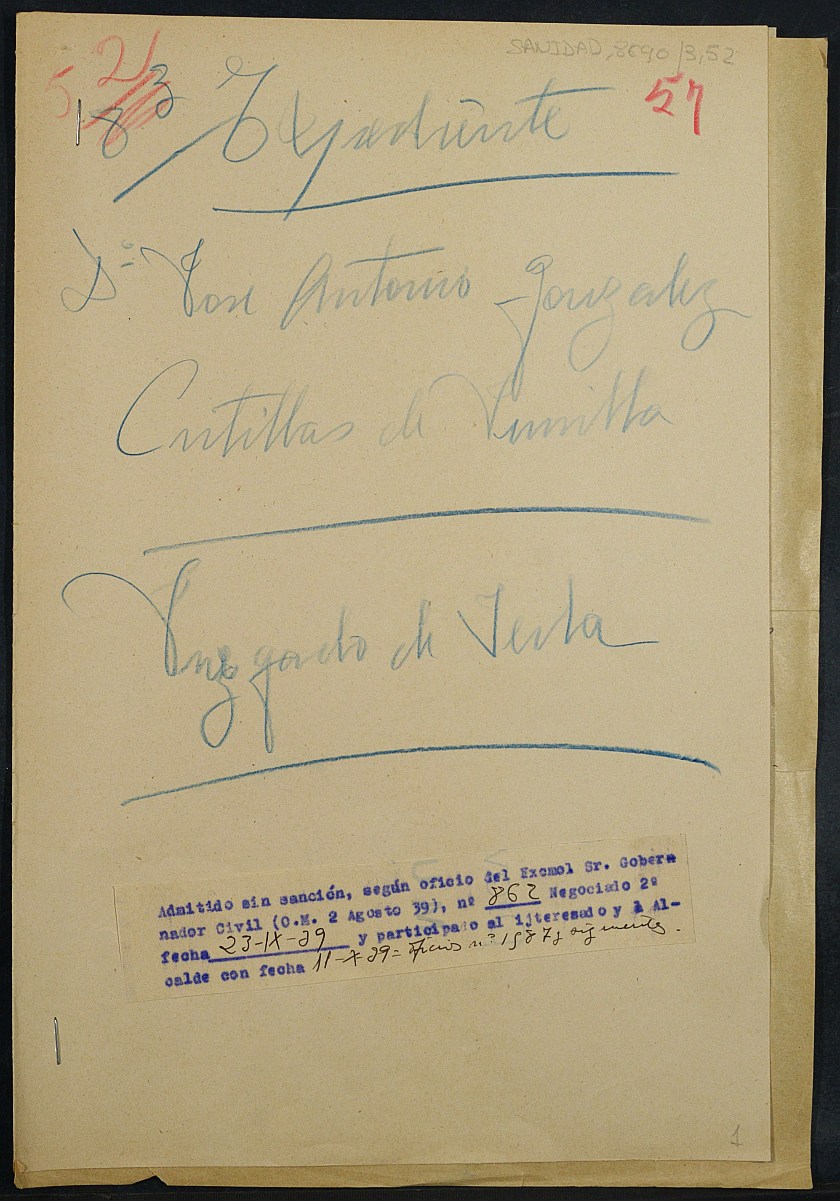 SANIDAD, 8690/3,52
52
183
57
Expediente
Dn Jose Antonio Gonzalez
Cutillas de Jumilla
Juzgado de Yecla
Admitido sin sanción, según oficio del Excmol Sr. Goberna
nador Civil (O.M. 2 Agosto 39), nº 862 Negociado 2º
fecha 23-IX-39 y participado al ijteresado y a Al-
calde con fecha 11-X-39= oficio nº 1587 y siguientes.
1